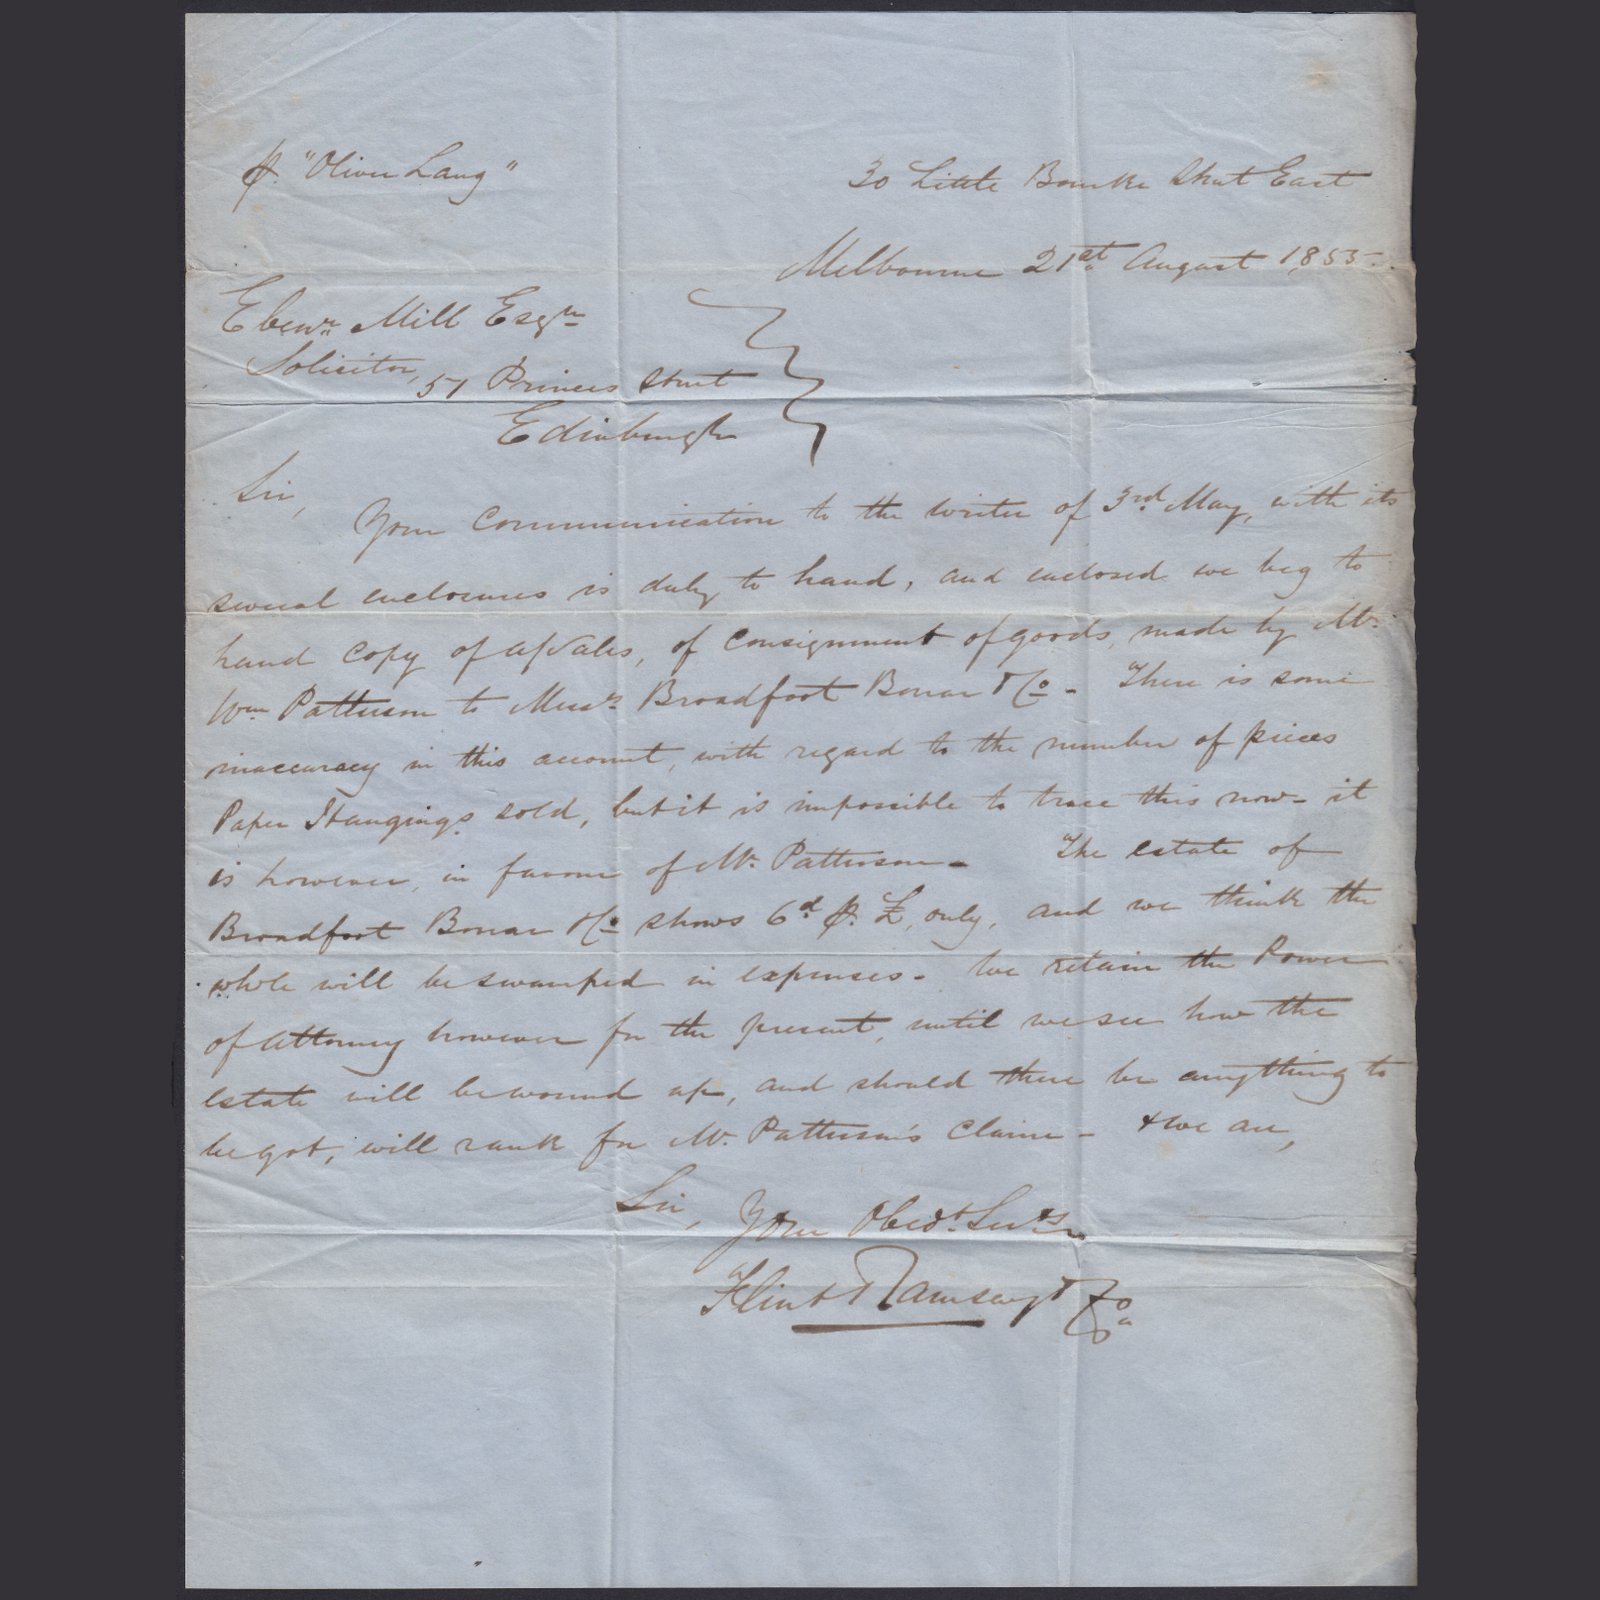 p. "Oliver Lang"
30 Little Bourke Street East
Melbourne 21st August 1855
Ebenr. Mill Esqre
Solicitor, 57 Princes Street
Edinburgh
Sir,
Your Communication to the writer of 3rd May, with its
several enclosures is duly to hand, and enclosed we beg to
hand Copy of a/Sales, of Consignment of goods, made by Mr.
Wm Patterson to Messrs Broadfoot Bonar & Co - There is some
inaccuracy in this account, with regard to the number of pieces
Paper Hangings sold, but it is impossible to trace this now - it
is however, in favour of Mr. Patterson - The estate of
Broadfoot Bonar & Co shows 6d p. £, only, and we think the
whole will be swamped in expenses - We retain the Power
of Attorney however for the present, until we see how the
estate will be wound up, and should there be anything to
be got, will rank for Mr. Patterson's Claim - & we are,
Sir,
Your Obedt. Servts
Flint Ramsay & Co